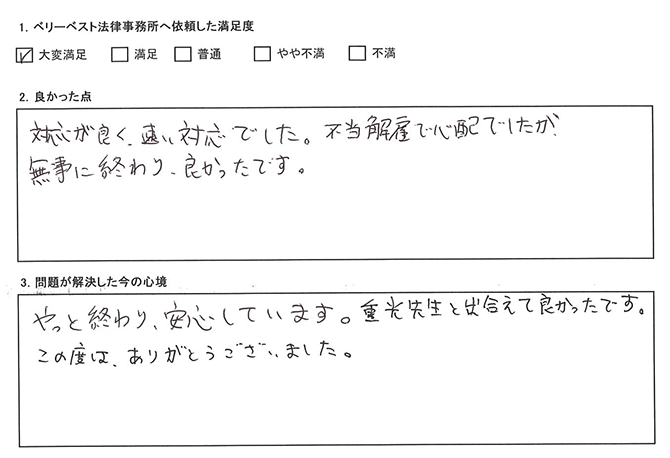 1. ベリーベスト法律事務所へ依頼した満足度
☑ 大変満足 □ 満足 □ 普通 □ やや不満 □ 不満
2. 良かった点
対応が良く、速い対応でした。不当解雇で心配でしたが、
無事に終わり、良かったです。
3. 問題が解決した今の心境
やっと終わり、安心しています。重光先生と出合えて良かったです。
この度は、ありがとうございました。